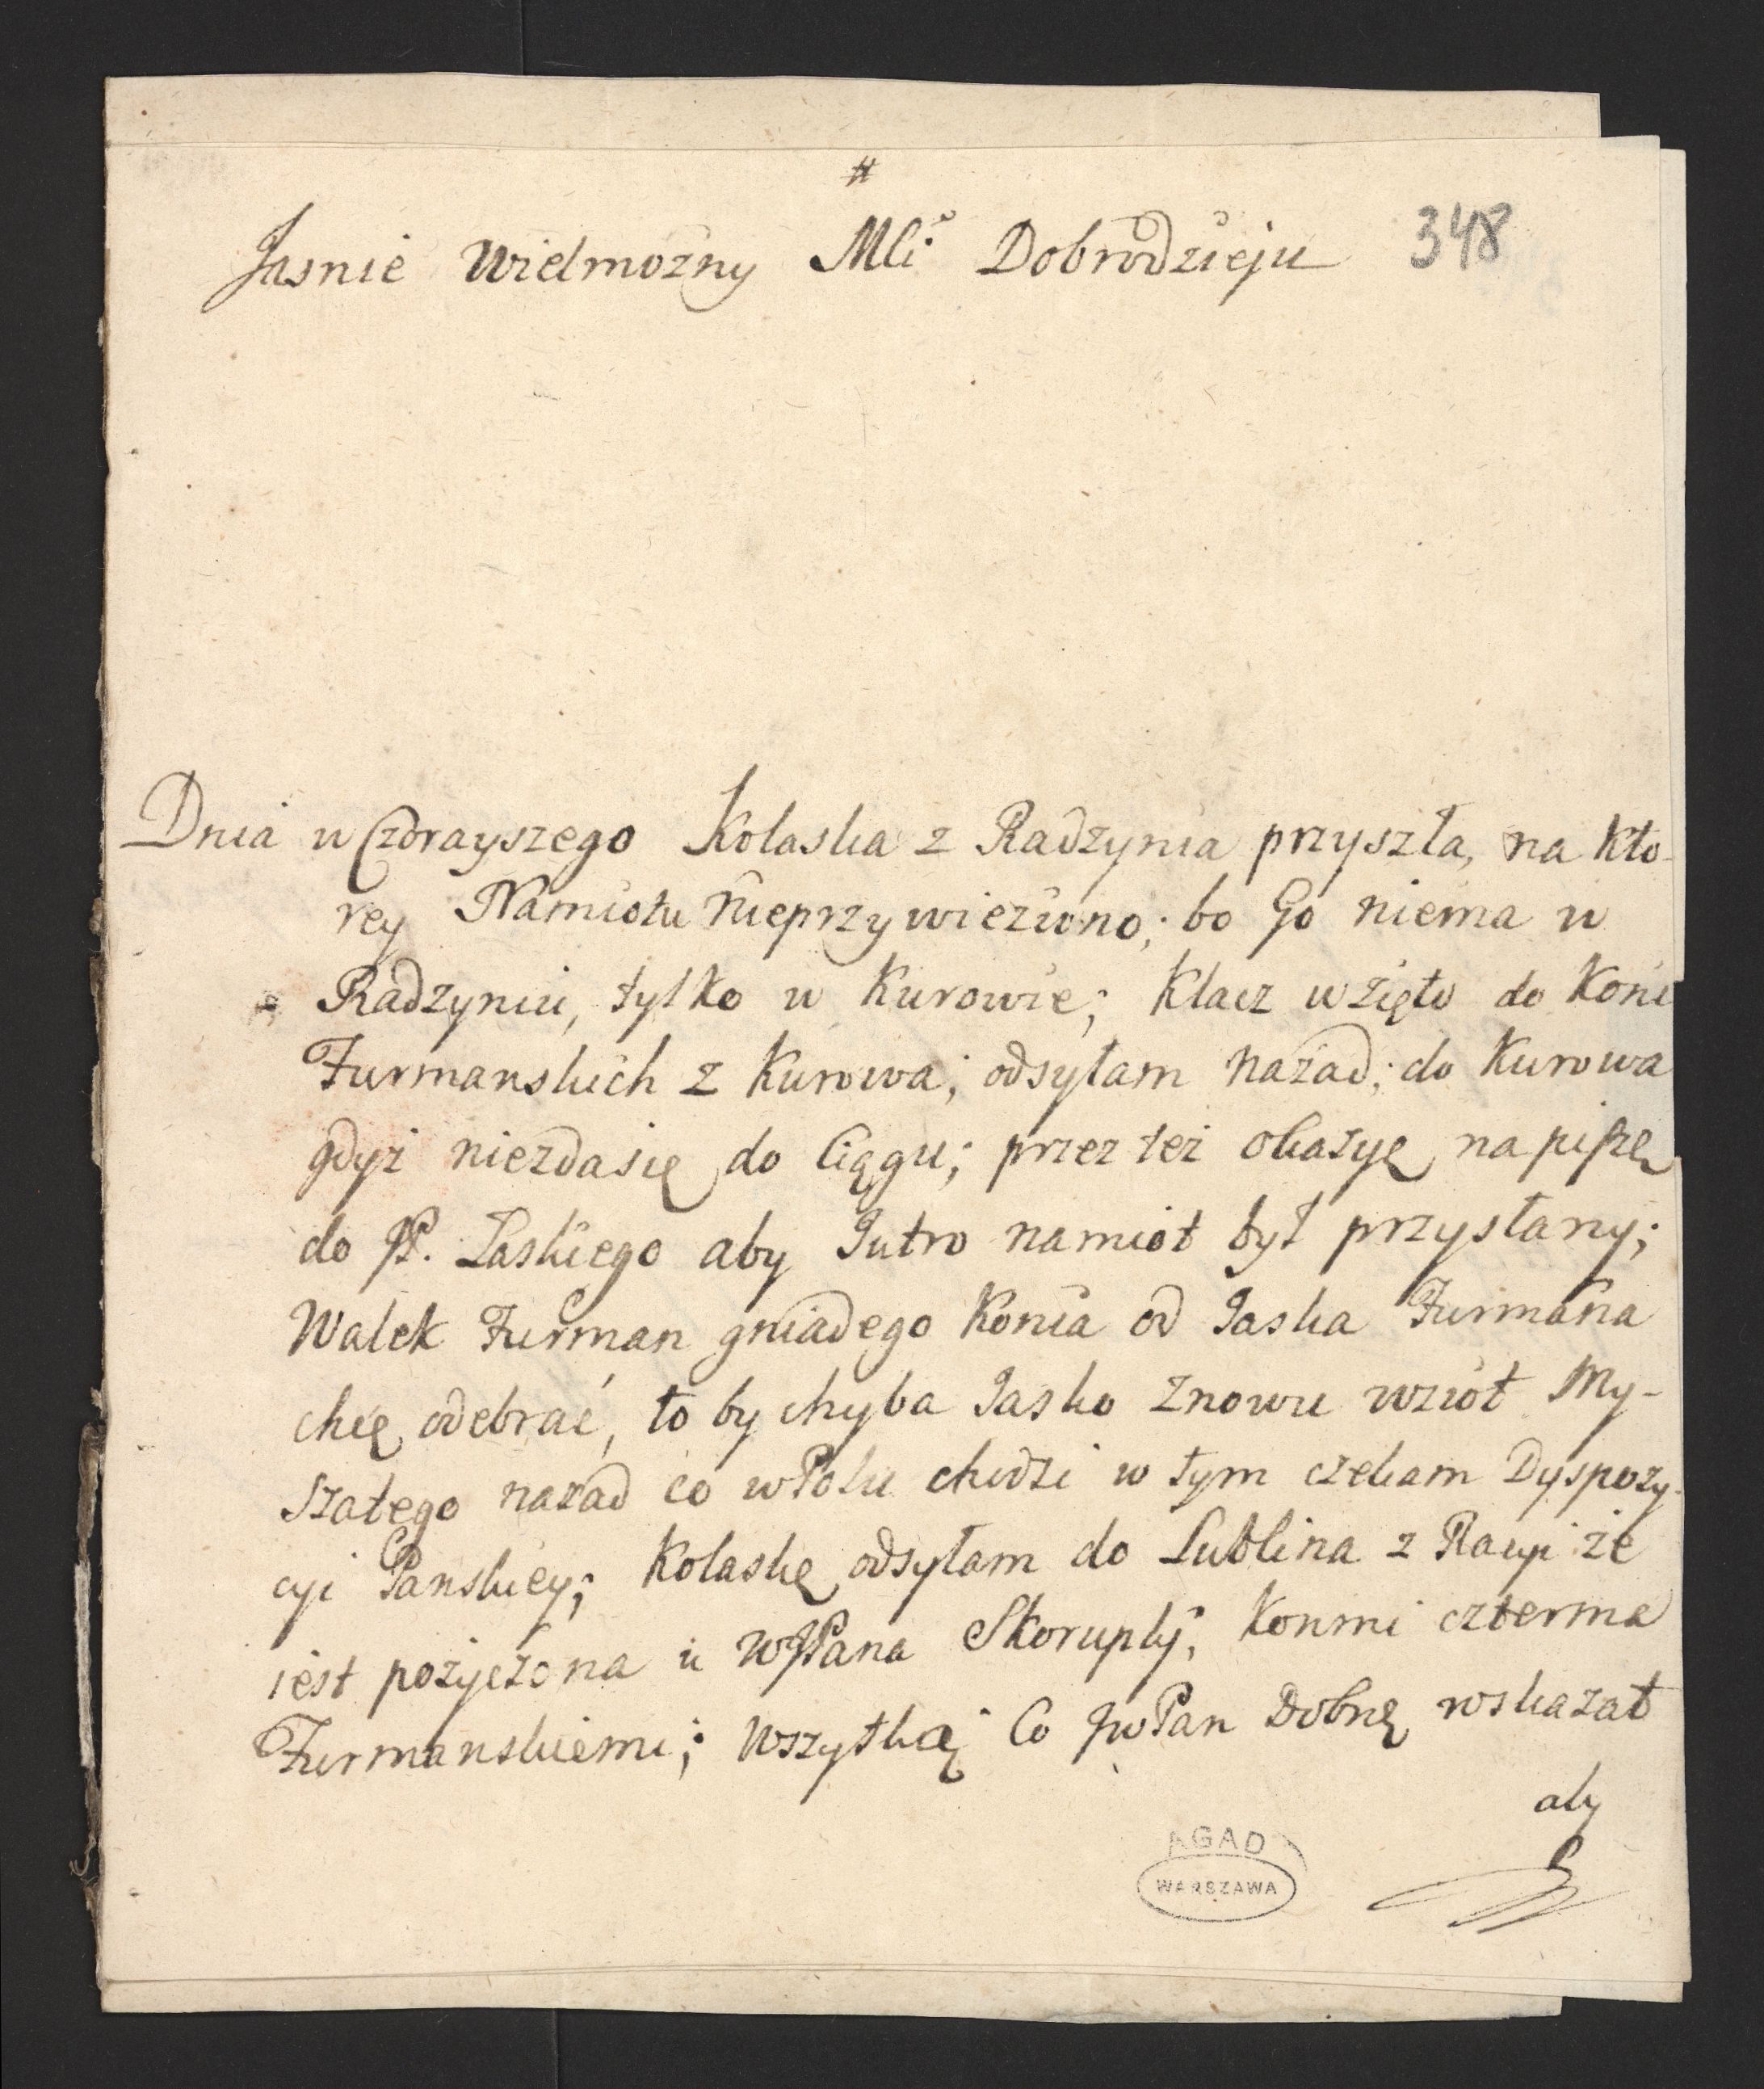 #
Jasnie Wielmożny Mci Dobrodzieju 348
Dnia wczorayszego Kolaska z Radzynia przyszła, na kto-
rey Namiotu nieprzywieziono; bo Go niema w
Radzyniu, tylko w Kurowie; Klacz wzięto do Koni
Furmanskich z Kurowa; odsyłam nazad; do Kurowa
gdyż niezdasię do Ciągu; przez też okazyę napiszę
do JP. Laskiego aby Jutro namiot był przysłany;
Walek Furman gniadego Konia od Jaska Furmana
chcę odebrać, to by chyba Jasko znowu wziół My-
szatego nazad co w Polu chodzi w tym czekam Dyspozy-
cyi Panskiey; Kolaskę odsyłam do Lublina z Racyi że
iest pożyczona u WJPana Skorupky, Konmi czterma
Furmanskiemi; Wszytko Co JwPan Dobrę wskazał
aby
AGAD
WARSZAWA